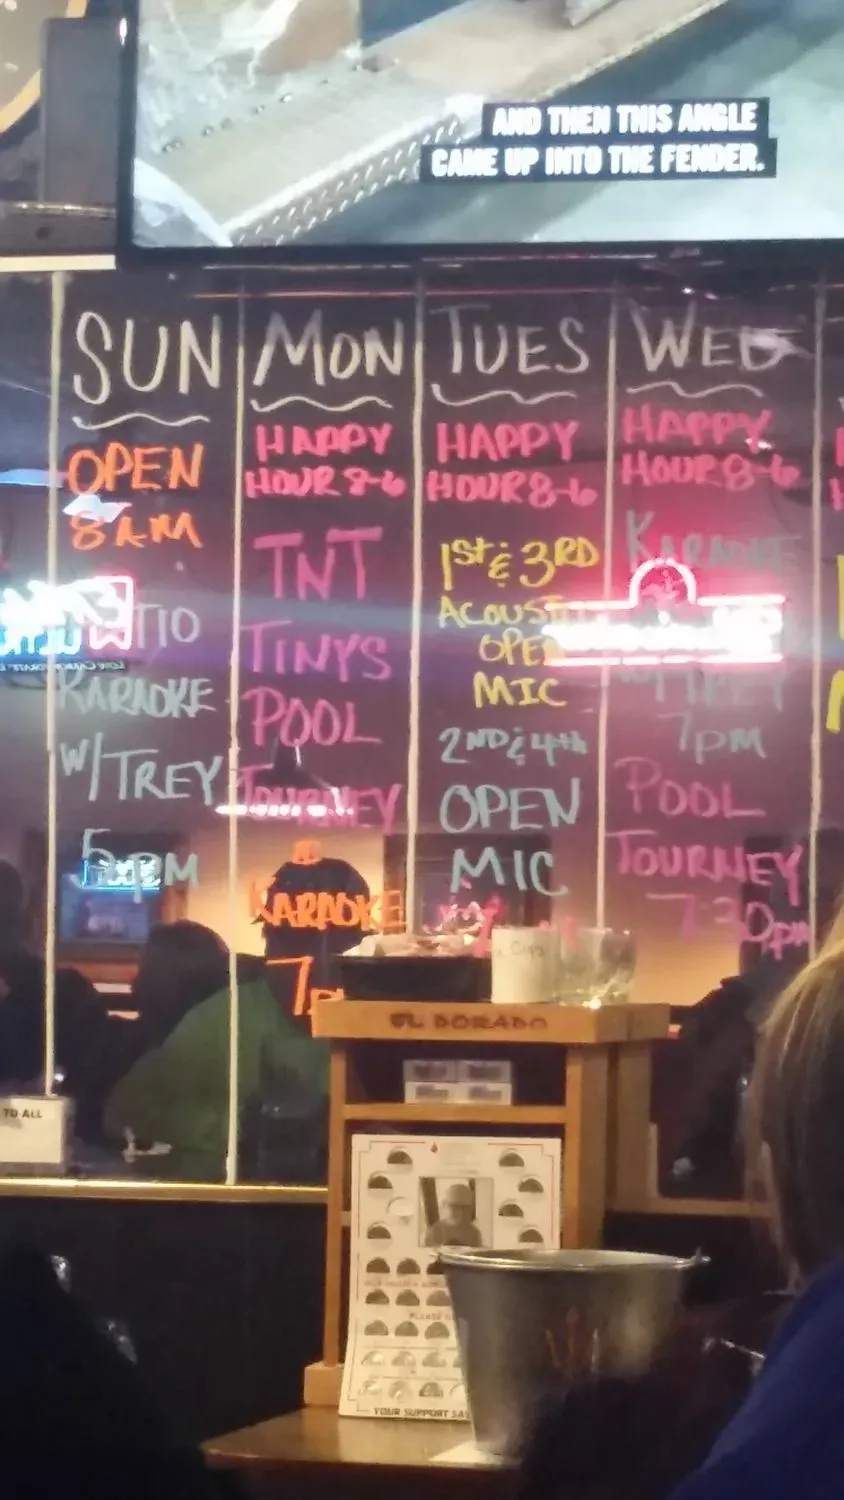 AND THEN THIS ANGLE
CAME UP INTO THE FENDER.
SUN
OPEN
8AM
KARAOKE
W/TREY
5PM
MON
HAPPY
HOUR 8-6
TNT
TINYS
POOL
TOURNEY
KARAOKE
TUES
HAPPY
HOUR 8-6
1ST & 3RD
ACOUSTIC
OPEN
MIC
2ND & 4th
OPEN
MIC
WED
HAPPY
HOUR 8-6
KARAOKE
W/TREY
7pm
POOL
TOURNEY
7:30pm
EL DORADO
TO ALL
YOUR SUPPORT